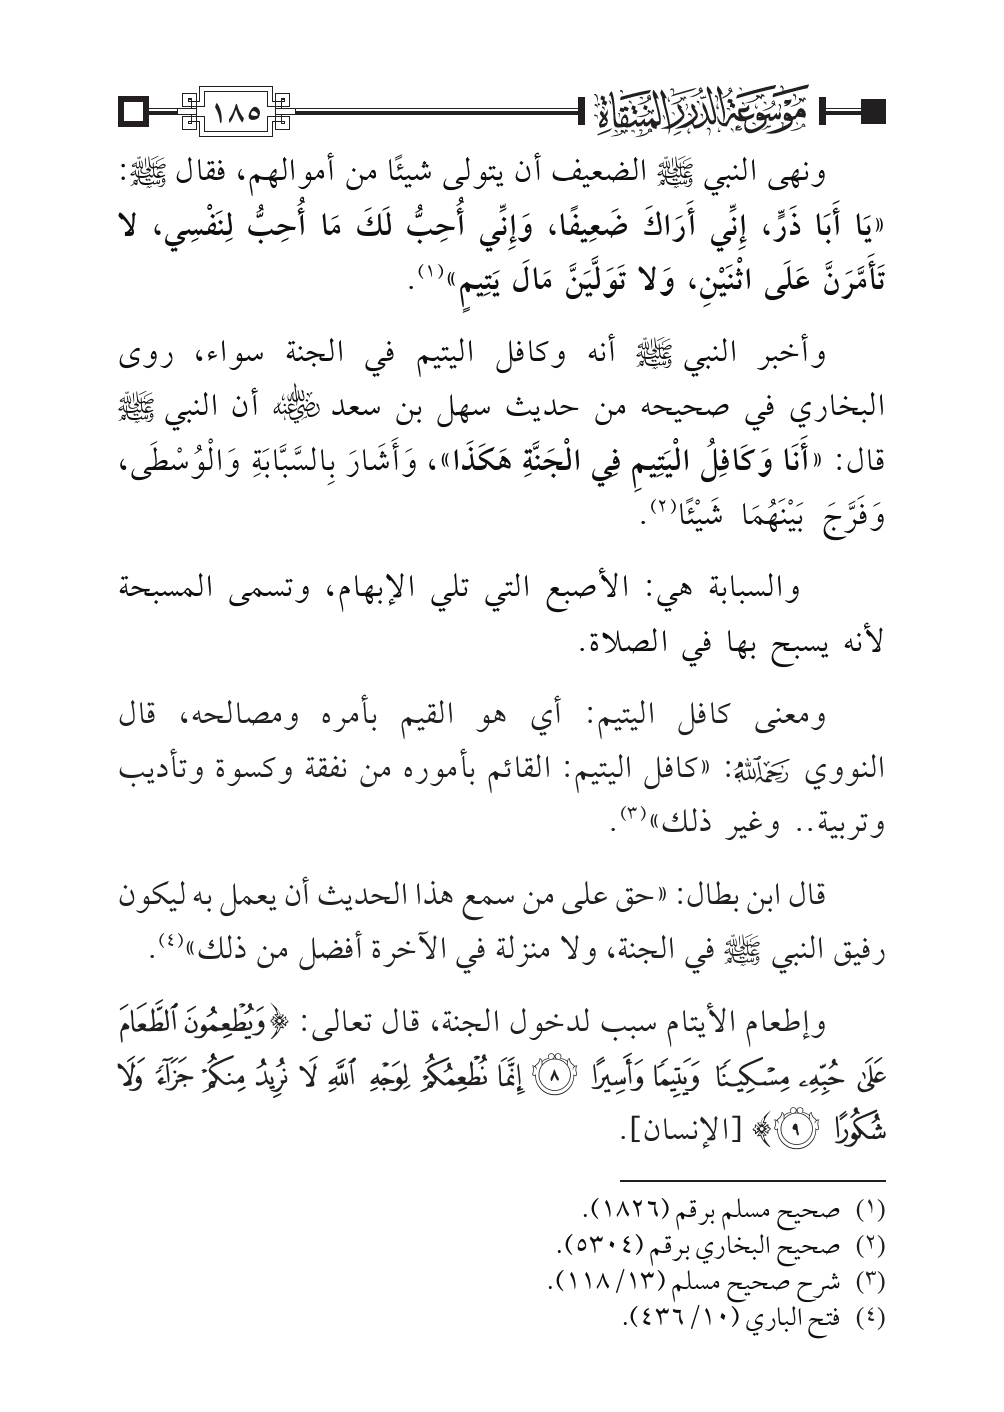 موسوعة الدرر المنتقاة
١٨٥
ونهى النبي ﷺ الضعيف أن يتولى شيئًا من أموالهم، فقال ﷺ:
«يَا أَبَا ذَرٍّ، إِنِّي أَرَاكَ ضَعِيفًا، وَإِنِّي أُحِبُّ لَكَ مَا أُحِبُّ لِنَفْسِي، لا
تَأَمَّرَنَّ عَلَى اثْنَيْنِ، وَلا تَوَلَّيَنَّ مَالَ يَتِيمٍ»(١).
وأخبر النبي ﷺ أنه وكافل اليتيم في الجنة سواء، روى
البخاري في صحيحه من حديث سهل بن سعد رضي الله عنه أن النبي ﷺ
قال: «أَنَا وَكَافِلُ الْيَتِيمِ فِي الْجَنَّةِ هَكَذَا»، وَأَشَارَ بِالسَّبَّابَةِ وَالْوُسْطَى،
وَفَرَّجَ بَيْنَهُمَا شَيْئًا(٢).
والسبابة هي: الأصبع التي تلي الإبهام، وتسمى المسبحة
لأنه يسبح بها في الصلاة.
ومعنى كافل اليتيم: أي هو القيم بأمره ومصالحه، قال
النووي رحمه الله: «كافل اليتيم: القائم بأموره من نفقة وكسوة وتأديب
وتربية.. وغير ذلك»(٣).
قال ابن بطال: «حق على من سمع هذا الحديث أن يعمل به ليكون
رفيق النبي ﷺ في الجنة، ولا منزلة في الآخرة أفضل من ذلك»(٤).
وإطعام الأيتام سبب لدخول الجنة، قال تعالى: ﴿وَيُطْعِمُونَ ٱلطَّعَامَ
عَلَىٰ حُبِّهِۦ مِسْكِينًا وَيَتِيمًا وَأَسِيرًا ٨ إِنَّمَا نُطْعِمُكُمْ لِوَجْهِ ٱللَّهِ لَا نُرِيدُ مِنكُمْ جَزَآءً وَلَا
شُكُورًا ٩﴾ [الإنسان].
(١) صحيح مسلم برقم (١٨٢٦).
(٢) صحيح البخاري برقم (٥٣٠٤).
(٣) شرح صحيح مسلم (١٣/ ١١٨).
(٤) فتح الباري (١٠/ ٤٣٦).